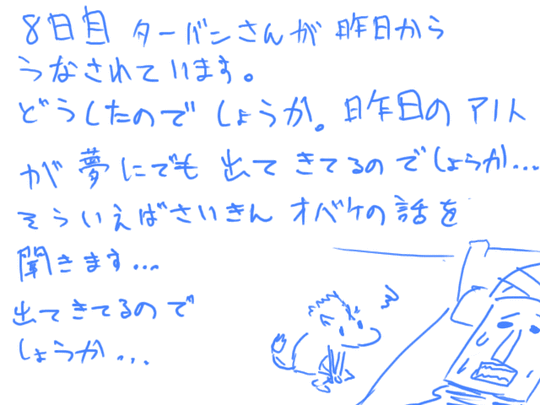 8日目 ターバンさんが昨日から
うなされています。
どうしたのでしょうか。昨日のアノ人
が夢にでも出てきてるのでしょうか...
そういえばさいきんオバケの話を
聞きます...
出てきてるので
しょうか...